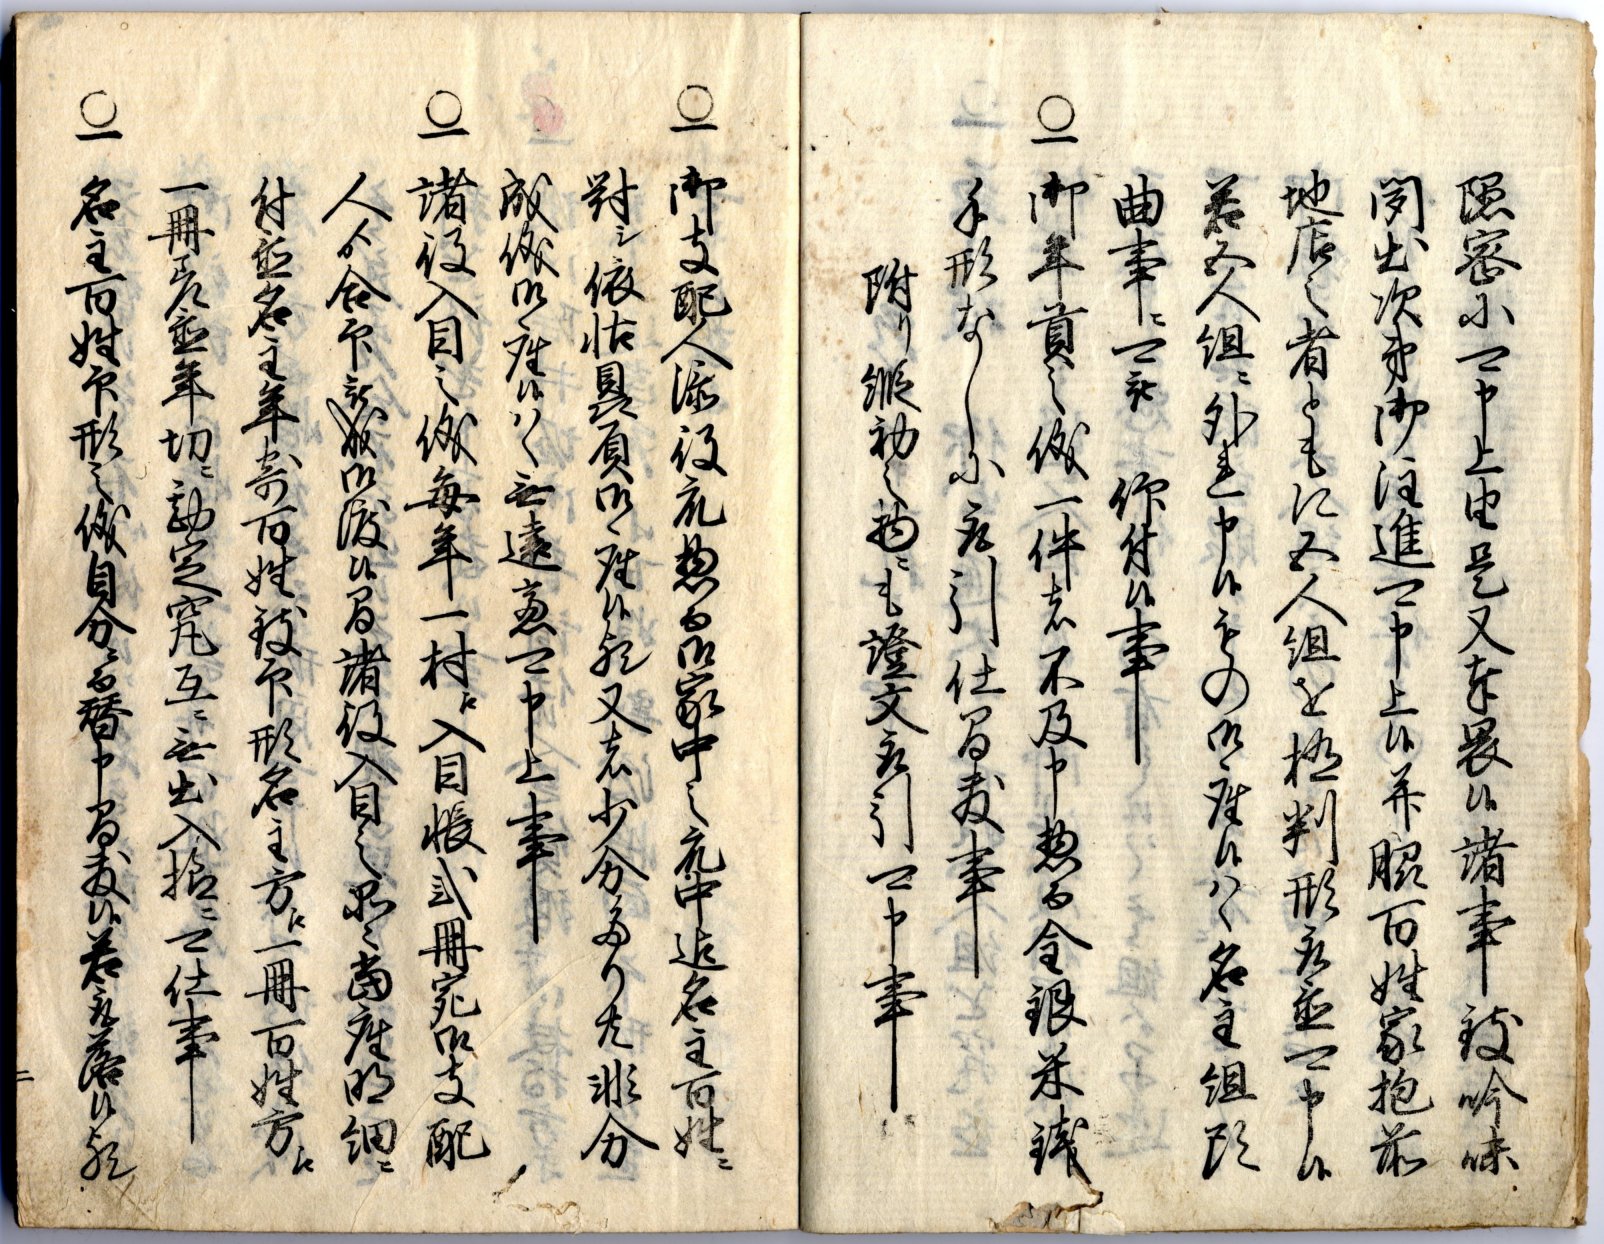 隠密ニ可申上由是又奉畏候諸事致吟味
聞出次第御注進可申上候并脇百姓家抱前
地店之者ともに五人組を極判形取置可申候
若五人組ニ外レ申候もの御座候ハヽ名主組頭
曲事ニ可被 仰付候事
○一 御年貢之儀一件者不及申惣而金銀米銭
手形なしニ取引仕間敷事
附り縦初之物ニも證文取引可申事
○一 御支配人添役元惣而御家中之元中迄名主百姓ニ
對シ依怙贔屓御座候歟又者少分たり共非分
成儀御座候ハヽ無遠慮可申上事
○一 諸役入目之儀毎年一村ニ入目帳弐冊宛御支配
人ゟ合印被成御渡候間諸役入目之品々當座明細ニ
付置名主年寄百姓致印形名主方ニ一冊百姓方ニ
一冊取置年切ニ勘定究互ニ無出入様ニ可仕事
○一 名主百姓印形之儀自分ニ而替申間敷候若取落候歟